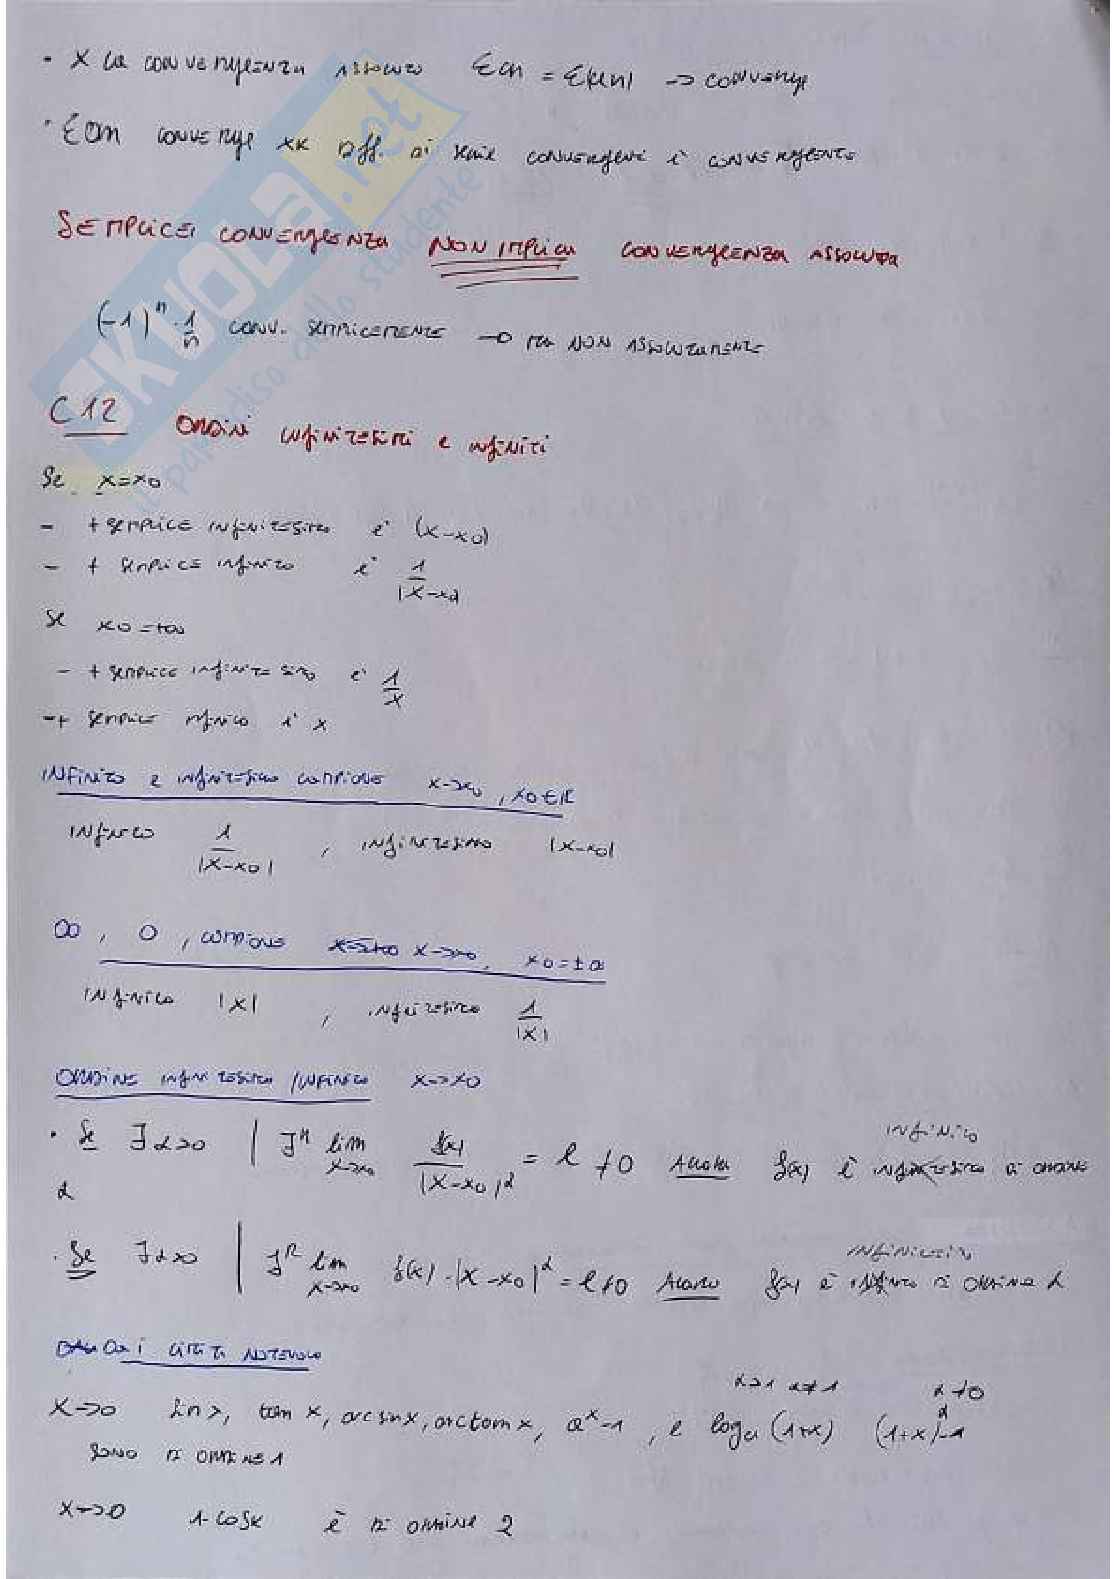 • X la convergenza assoluto Σcn = Σ|an| -> converge
• Σan converge xk Diff. di serie convergenti è convergente
SEMPLICE convergenza NON IMPLICA convergenza assoluta
(-1)^n · 1/n conv. semplicemente -> ma non assolutamente
C12 Ordini infinitesimi e infiniti
Se x=x0
- + semplice infinitesimo è (x-x0)
- + semplice infinito è 1/|x-x0|
Se x0=+∞
- + semplice infinitesimo è 1/x
- + semplice infinito è x
INFINITO e infinitesimo campione x->x0, x0∈R
infinito 1/|x-x0| , infinitesimo |x-x0|
∞, 0, campione x->x0, x0=±∞
infinito |x| , infinitesimo 1/|x|
ORDINE infinitesimo/infinito x->x0
infinito
• Se ∃α>0 | ∃ lim x->x0 f(x)/|x-x0|^α = l ≠0 Allora f(x) è infinitesimo di ordine
α
infinitesimo
• Se ∃α>0 | ∃ lim x->x0 f(x)·|x-x0|^α = l≠0 Allora f(x) è infinito di ordine α
limiti notevoli
α≠0
x->0 sin x, tan x, arcsinx, arctanx, a^x-1, e log_a(1+x) (1+x)^α-1
sono di ordine 1
x->0 1-cosx è di ordine 2
SKUOLA.net
il paradiso dello studente